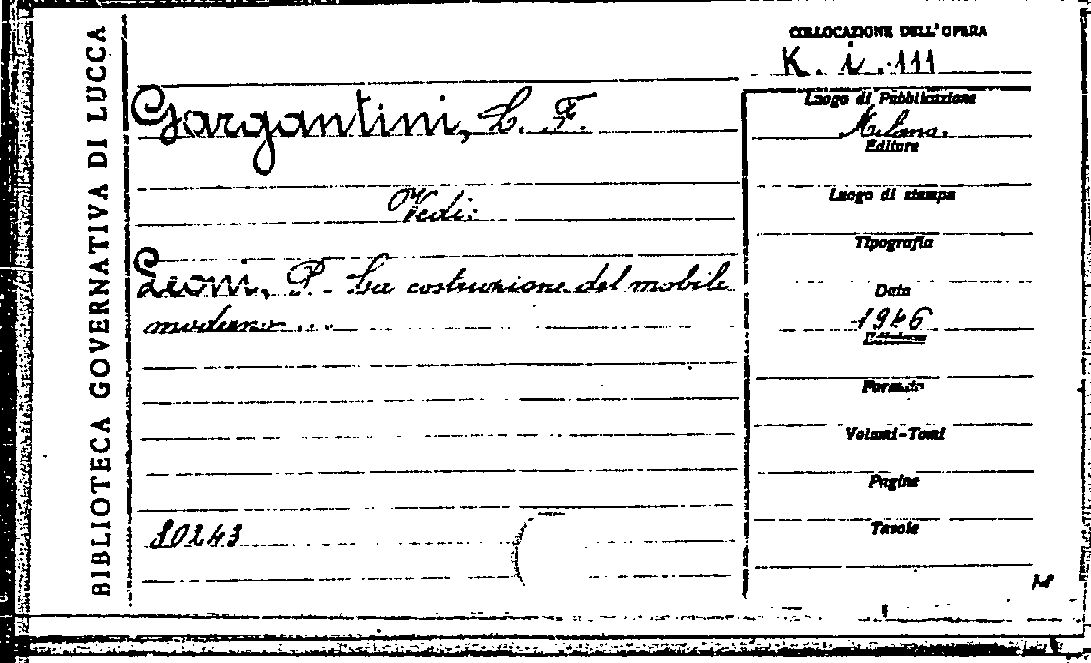 BIBLIOTECA GOVERNATIVA DI LUCCA
COLLOCAZIONE DELL'OPERA
K. i. 111
Gargantini, L. F.
Vedi:
Leoni, P. - La costruzione del mobile
moderno ...
80243
Luogo di Pubblicazione
Milano.
Editore
Luogo di stampa
Tipografia
Data
1946
Edizione
Formato
Volumi-Tomi
Pagine
Tavole